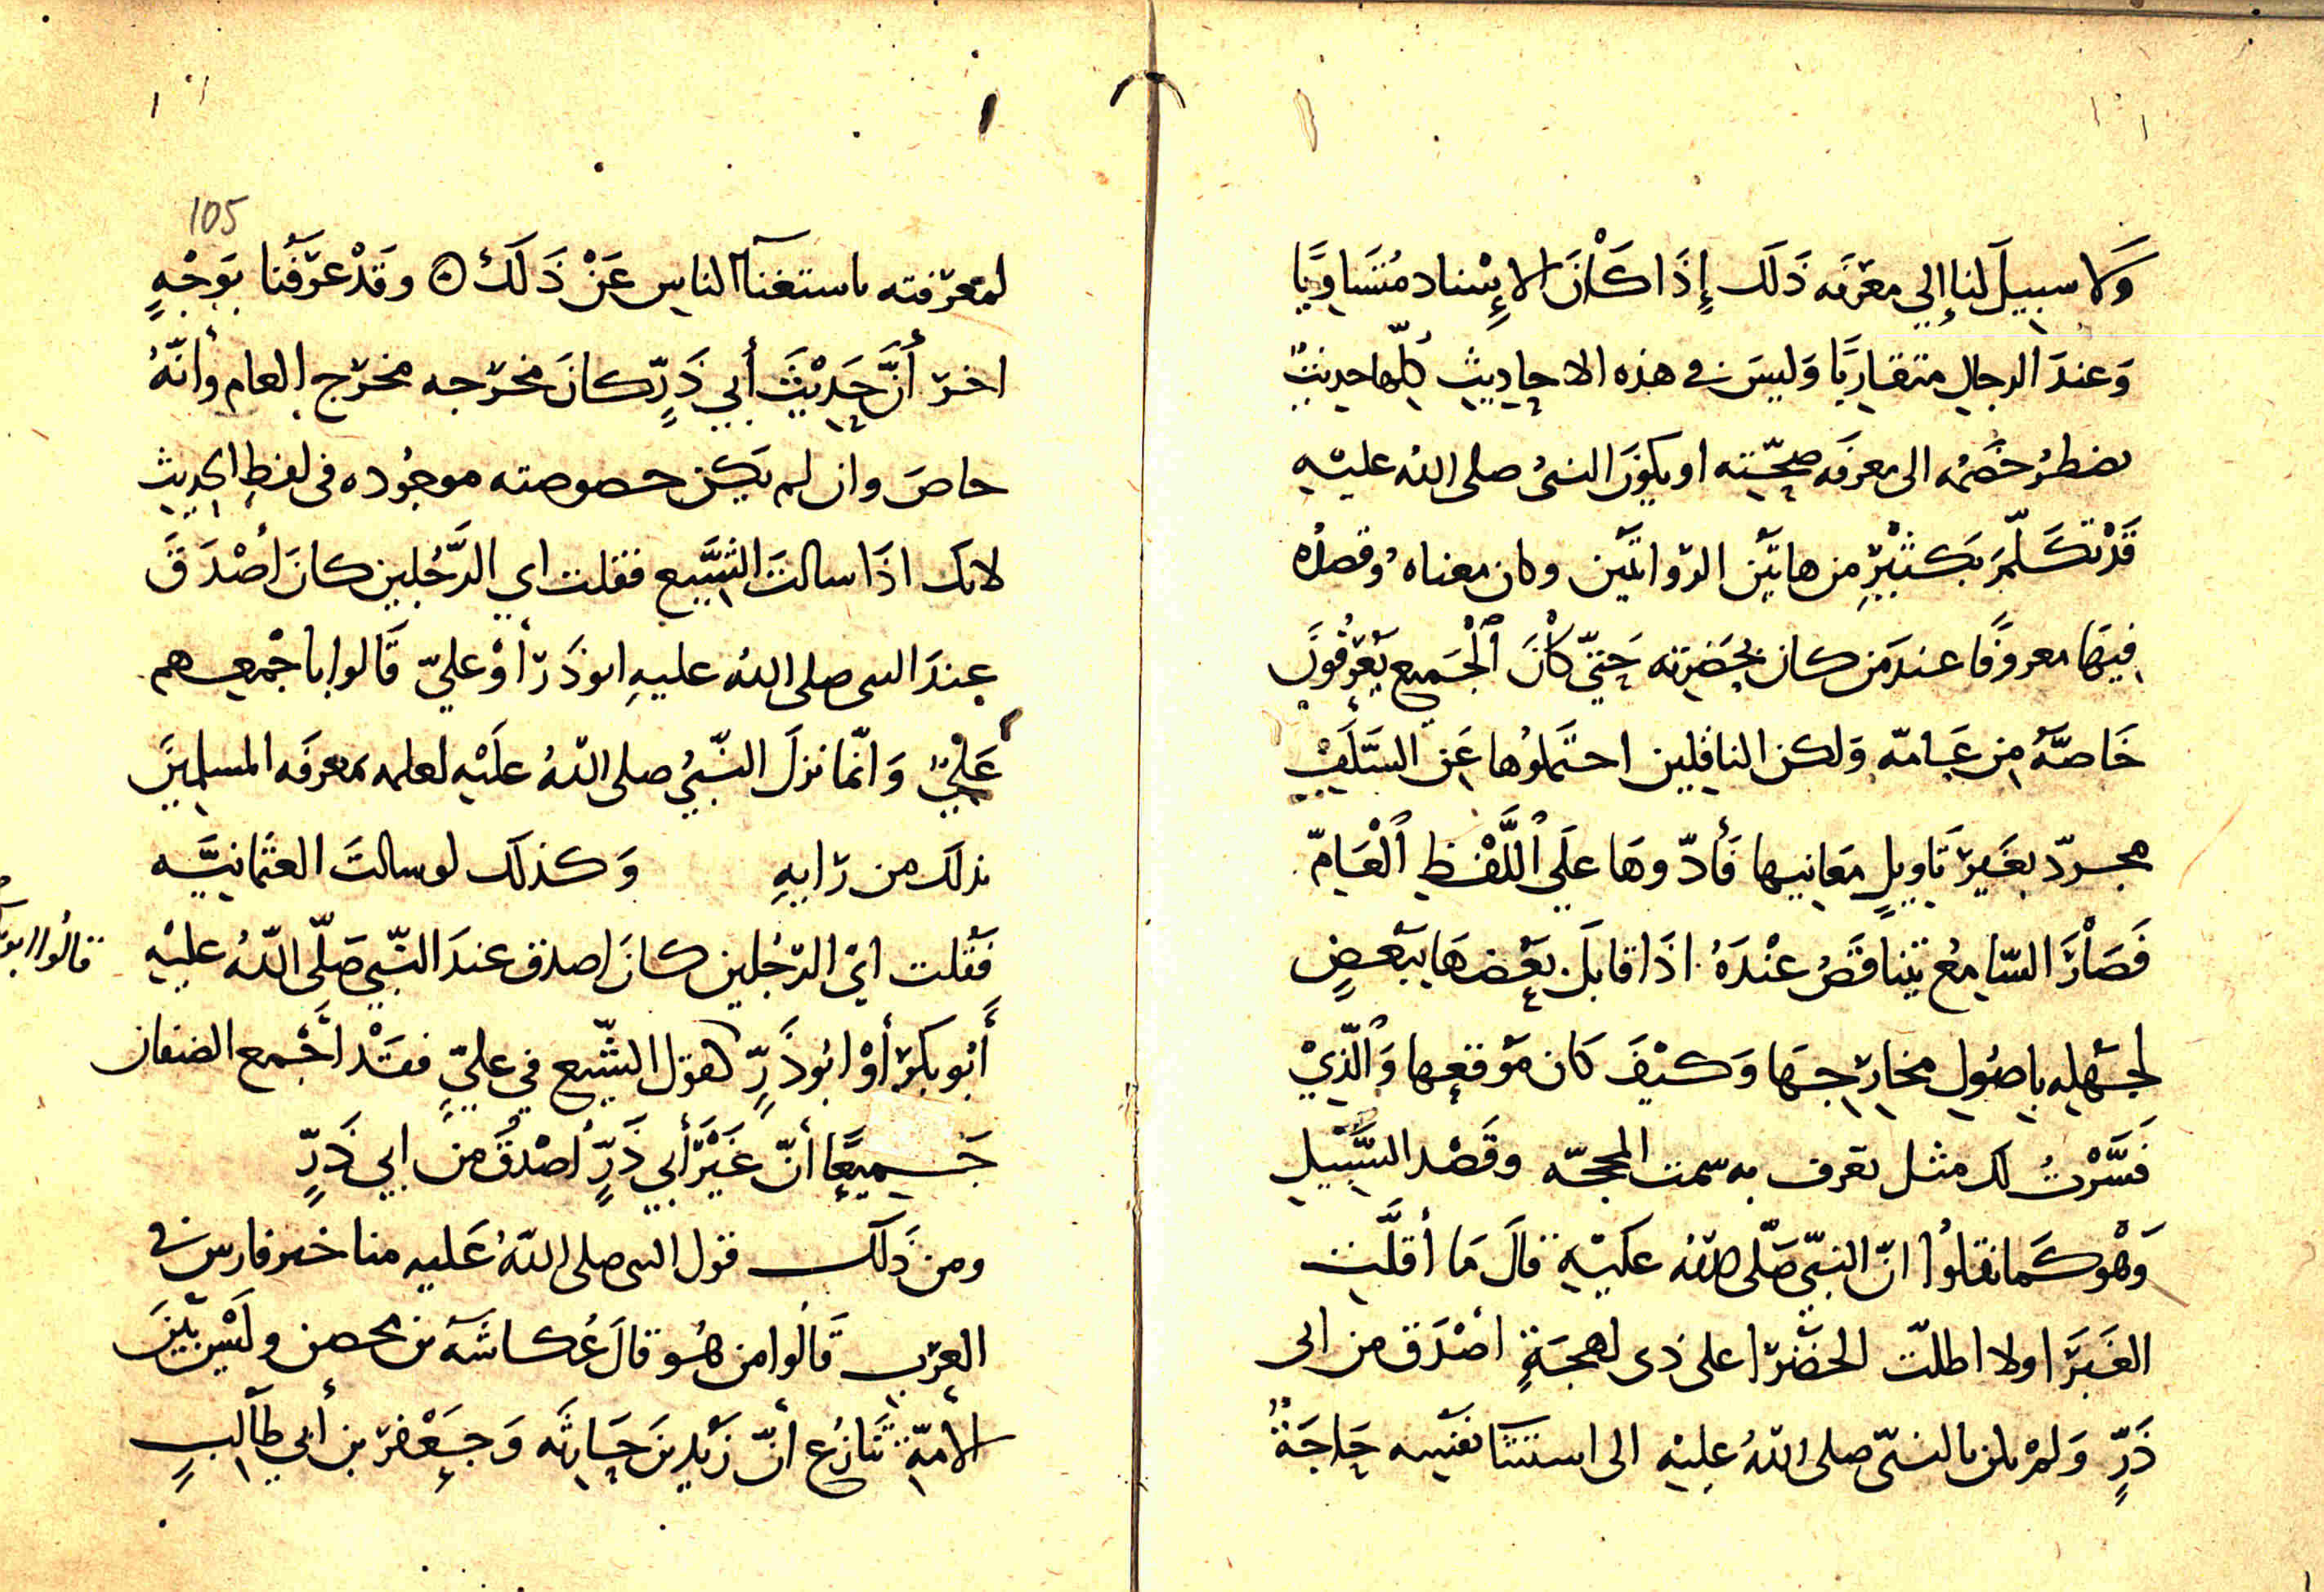 وَلا سبيلَ لنا إلي معرفَه ذَلَك إذَا كَانَ الإسناد مُتَسَاويًا
وَعندَ الرجالِ متقاربًا وَليسَ في هذه الاحاديثِ كلّها حديثٌ
يضطرُ خصْمُه الى معرفَه صحّته او يكونَ النبىُ صلى اللهُ عليْه
قَدْ تكَلّمَ بكَثيْرٍ من هاتَيْن الرّواتَيْن وكان معناه وقصدُه
فيهَا معروفًا عندَ من كان بحَضرته حَتيّ كأنَ اْلجَميع يَعرفُونَ
خَاصَّهُ من عَامّه وَلكن الناقلين احتملُوها عَن السّلَف
مجردّ بغَير تَاويلِ معَانيها فَأدّوهَا عَلَي اللَّفْظِ اْلعَامّ
فَصَاْرَ السّامعُ تتناقَضُ عنْدَهُ اذَا قابَلَ بعْضهَا ببَعْضٍ
لجهْله باصُولِ مخارجهَا وَكيْفَ كَان مَوقعها وَالّذيْ
فسَّرْتُ لك مثل تعرف به سمت المحجّه وقَصْد السَّبيْلِ
وَهْو كَما نقلوُا انّ النبيّ صَلّى الله عليْه قالَ مَا أقلَّت
الغَبَرَا ولا اطلّت الخضْرَا على ذى لهجَةٍ اصْدَق من ابى
ذَرٍّ وَلمْ يكن بالنبىّ صلى اللهُ عليْه الى استثنَا نفسه حَاجَةٌ
105
لمعرفته باستغنآ الناسِ عَنْ ذَلَكَ ⊙ وقَدْ عرَّفَنا بوَجْهٍ
اخر أنَّ حَديْثَ أبي ذَرٍّ كانَ مخرَجه مخرَج العام وأنّهُ
خاصَ وان لم يكن خصوصته موجُوده فى لفظِ الحديث
لانك اذَا سالتَ الشِّيع فقلت اي الرَّجُلين كانَ أصْدَقَ
عندَ النبى صلى اللهُ عليهِ ابو ذَرّ أوْ عليّ قَالوا باجْمعهم
عَليٌ وَانّما نزلَ النّبيُ صلى اللهُ علَيْه لعلمه بمعرفَه المسلمينَ
بذلك من رَايهِ وَكذلَك لو سالتَ العثمانيَّه
فَقلت ايّ الرّجُلين كانَ اصدق عندَ النّبيّ صَلّى اللهُ عليْه
قالُوا ابو
أَبُو بكرٍ أوْ ابُو ذَرٍّ كقول الشّيع في عليٍّ فقَدْ أجْمع الصنفان
جَميعًا أنّ غَيْرَ أبي ذَرٍّ أصْدقُ من ابي ذَرٍّ
ومن ذَلَك قول النبى صلى اللهُ عَليه منا خير فارس في
العرَب قَالُوا من هُو قالَ عُكاشَه بن محصن وليْس بَيْنَ
الأمّة تنَازُع أنّ زَيْد بنَ حَارثَه وَجَعْفر بن أبي طالبٍ